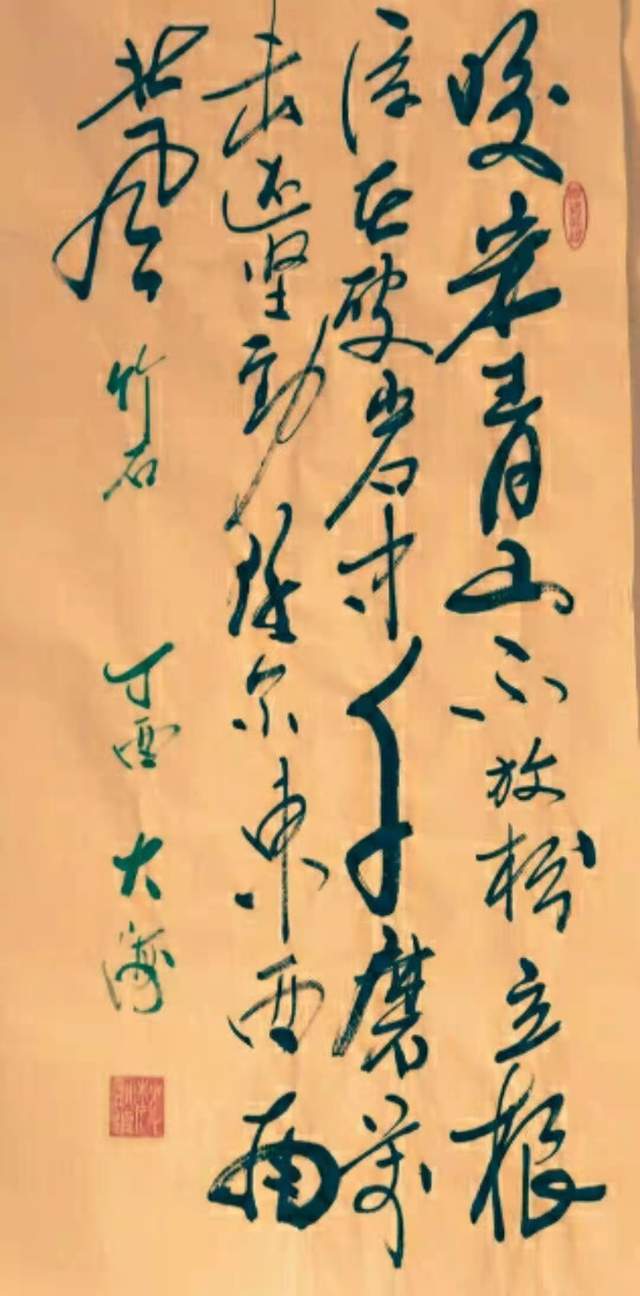 咬定青山不放松立根
原在破岩中千磨萬
击還坚劲任尔東西南
北風 竹石 丁酉 大海